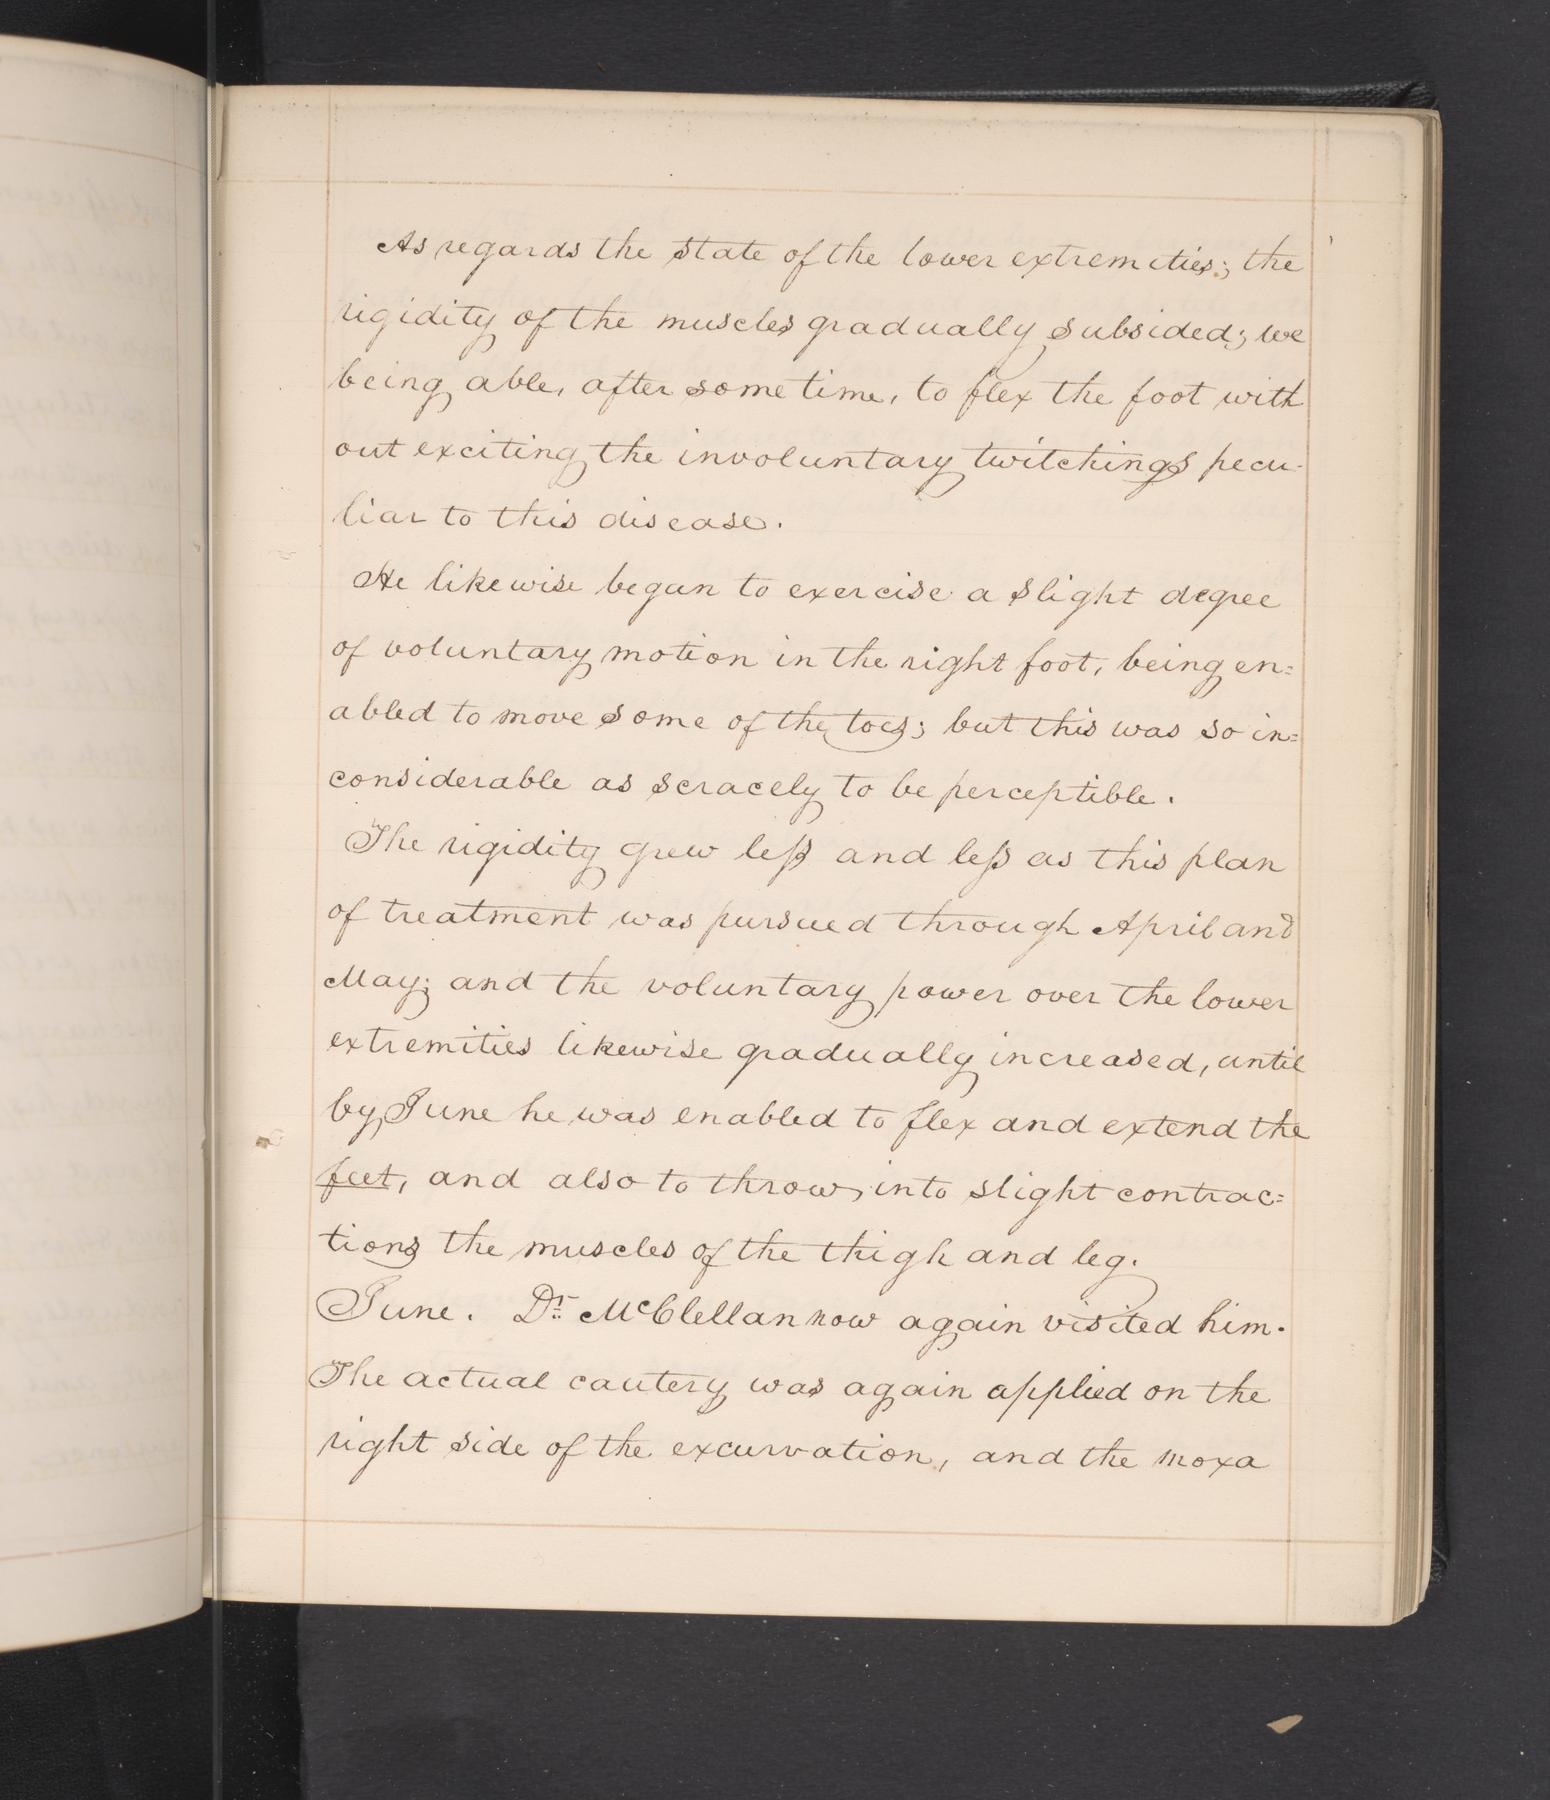 As regards the state of the lower extremities; the
rigidity of the muscles gradually subsided; we
being able, after some time, to flex the foot with
out exciting the involuntary twitchings pecu-
liar to this disease.
He likewise began to exercise a slight degree
of voluntary motion in the right foot, being en=
abled to move some of the toes; but this was so in=
considerable as scracely to be perceptible.
The rigidity grew less and less as this plan
of treatment was pursued through April and
May; and the voluntary power over the lower
extremities likewise gradually increased, until
by June he was enabled to flex and extend the
feet, and also to throw, into slight contrac=
tions the muscles of the thigh and leg.
June. Dr. McClellan now again visited him.
The actual cautery was again applied on the
right side of the excurvation, and the moxa